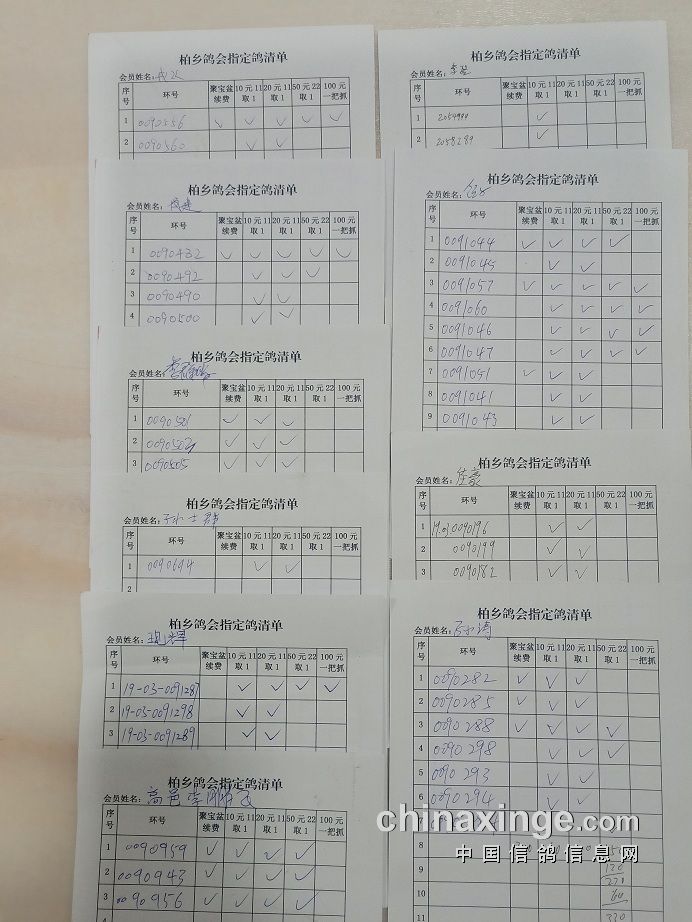 柏乡鸽会指定鸽清单
会员姓名:
序号 环号 聚宝盆续费 10元11取1 20元11取1 50元22取1 100元一把抓
1 0090556 ✓ ✓ ✓ ✓ ✓
2 0090560 ✓ ✓
柏乡鸽会指定鸽清单
会员姓名:
序号 环号 聚宝盆续费 10元11取1 20元11取1 50元22取1 100元一把抓
1 0090432 ✓ ✓ ✓ ✓ ✓
2 0090492 ✓ ✓ ✓
3 0090490 ✓ ✓
4 0090500 ✓ ✓
柏乡鸽会指定鸽清单
会员姓名:
序号 环号 聚宝盆续费 10元11取1 20元11取1 50元22取1 100元一把抓
1 0090501 ✓ ✓ ✓
2 0090502 ✓ ✓ ✓
3 0090505 ✓ ✓ ✓
柏乡鸽会指定鸽清单
会员姓名:
序号 环号 聚宝盆续费 10元11取1 20元11取1 50元22取1 100元一把抓
1 0090694 ✓ ✓
2
柏乡鸽会指定鸽清单
会员姓名: 现辉
序号 环号 聚宝盆续费 10元11取1 20元11取1 50元22取1 100元一把抓
1 19-03-0091287 ✓ ✓ ✓ ✓
2 19-03-0091298 ✓ ✓
3 19-03-0091289 ✓ ✓
柏乡鸽会指定鸽清单
会员姓名: 高邑李
序号 环号 聚宝盆续费 10元11取1 20元11取1 50元22取1 100元一把抓
1 0090959 ✓ ✓ ✓ ✓
2 0090943 ✓ ✓ ✓ ✓
3 0090956 ✓ ✓ ✓ ✓
柏乡鸽会指定鸽清单
会员姓名: 李
序号 环号 聚宝盆续费 10元11取1 20元11取1 50元22取1 100元一把抓
1 ✓
2 2058289 ✓
柏乡鸽会指定鸽清单
会员姓名:
序号 环号 聚宝盆续费 10元11取1 20元11取1 50元22取1 100元一把抓
1 0091044 ✓ ✓ ✓ ✓
2 0091045 ✓ ✓
3 0091057 ✓ ✓ ✓ ✓ ✓
4 0091060 ✓ ✓ ✓ ✓
5 0091046 ✓ ✓ ✓ ✓
6 0091047 ✓ ✓ ✓ ✓
7 0091051 ✓ ✓ ✓
8 0091041 ✓ ✓
9 0091043 ✓ ✓
柏乡鸽会指定鸽清单
会员姓名:
序号 环号 聚宝盆续费 10元11取1 20元11取1 50元22取1 100元一把抓
1 0090196 ✓ ✓
2 0090199 ✓ ✓
3 0090182 ✓ ✓
柏乡鸽会指定鸽清单
会员姓名:
序号 环号 聚宝盆续费 10元11取1 20元11取1 50元22取1 100元一把抓
1 0090282 ✓ ✓ ✓
2 0090285 ✓ ✓ ✓
3 0090288 ✓ ✓ ✓ ✓
4 0090298 ✓ ✓ ✓
5 0090293 ✓ ✓
6 0090294 ✓ ✓
8
9
10
11 320
chinaxinge.com
中国信鸽信息网